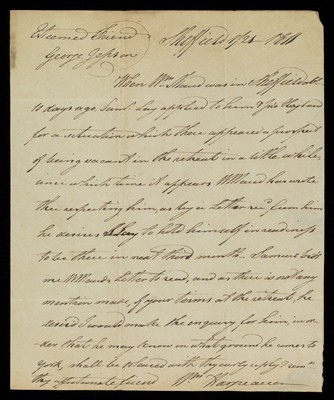 Esteemed Friend Sheffield 1/21 - 1811
George Jepson
When Wm Maud was in Sheffield abt
10 days ago, Saml Lay applied to him & Jno Hoyland
for a situation which there appeared a prospect
of being vacant in the retreat in a little while,
since which time it appears WMaud has wrote
thee respecting him, as by a Letter recd from him
he desires to hold himself in readiness
to be there in next third month - Samuel
me WMaud's Letter to read, and as there is not any
mention made, of your terms at the retreat, he
desired I would make the enquiry for him, in or
der that he may know on what ground he comes to
York, shall be pleased with thy early reply & am
thy affectionate friend Wm